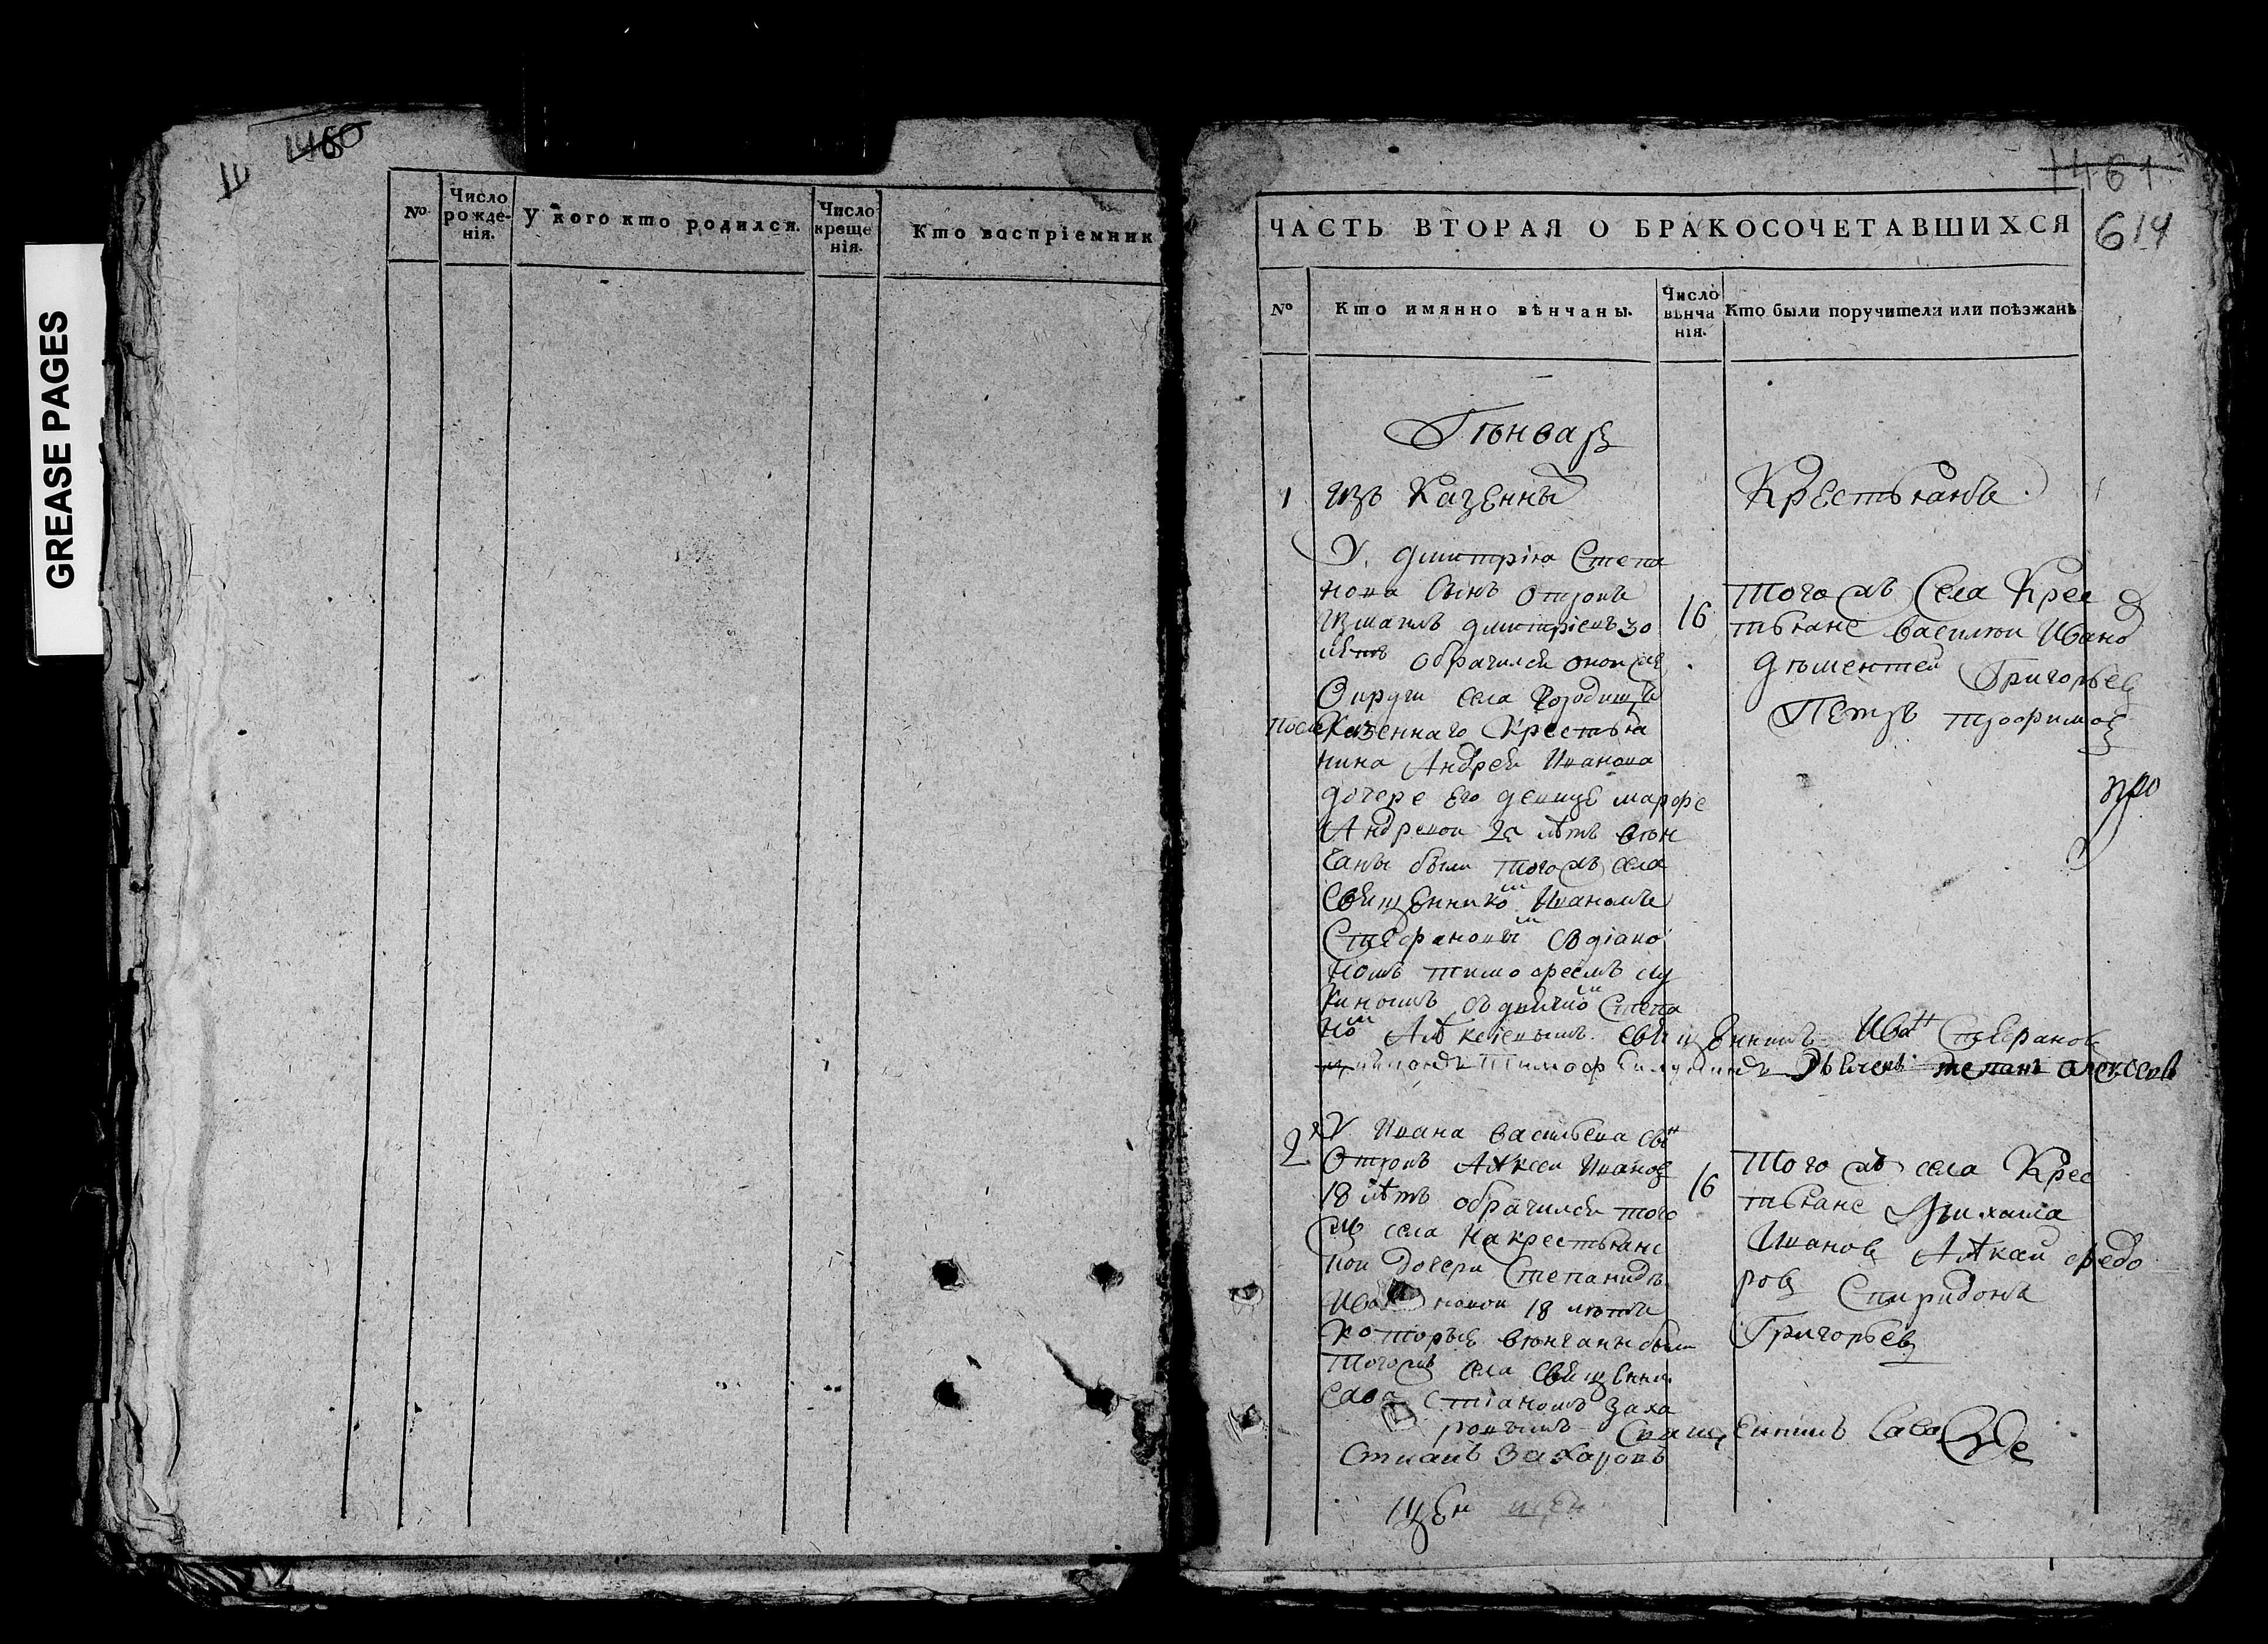 GREASE PAGES
1460
№
Число рожде-нія.
У кого кто родился.
Число креще нія.
Кто воспріемник
1461
614
ЧАСТЬ ВТОРАЯ О БРАКОСОЧЕТАВШИХСЯ
№
Кто имянно вѣнчаны.
Число вѣнча нія.
Кто были поручители или поѣзжанѣ
Гѣнвар
1 Изъ Казенны
Крестьянъ
У Дмитрія Степа
нова сынъ отрокъ
Измаилъ Дмитріевъ 30
лѣтъ обрачился оной же
Округи села Городищъ
Казеннаго Крестья
нина Андрея Иванова
дочере Его девице марфе
Андревой лѣтъ вѣн
чаны были тогожъ села
Священнико м Иваномъ
Стефановы м Здіако
номъ тимофеемъ лу
кинымъ съ дьячко м Степа
но м Алѣксеевымъ. священникъ Иван Стефанов
Тимофей Лукинъ Дьячекъ степанъ алексеевъ
16
Тогожъ Села Крес
тьяне василей Ивано
Дѣментей Григорьев
Петръ трофимов
2 У Ивана васильева сын
Отрокъ Алѣксей Иванов
18 лѣтъ обрачился того
жъ села На крестьянс
кой дочери Степанидѣ
Ива новой 18 лѣтъ
которые вѣнчаны были
тогожъ села священни
Сава стіаномъ Заха
ровымъ Священникъ Сава
Стианъ Захаровъ
16
Тогожъ села Крес
тьяне Михайла
Иванов Алѣксай федо
ров Спиридонъ
Григорьев
щен щен